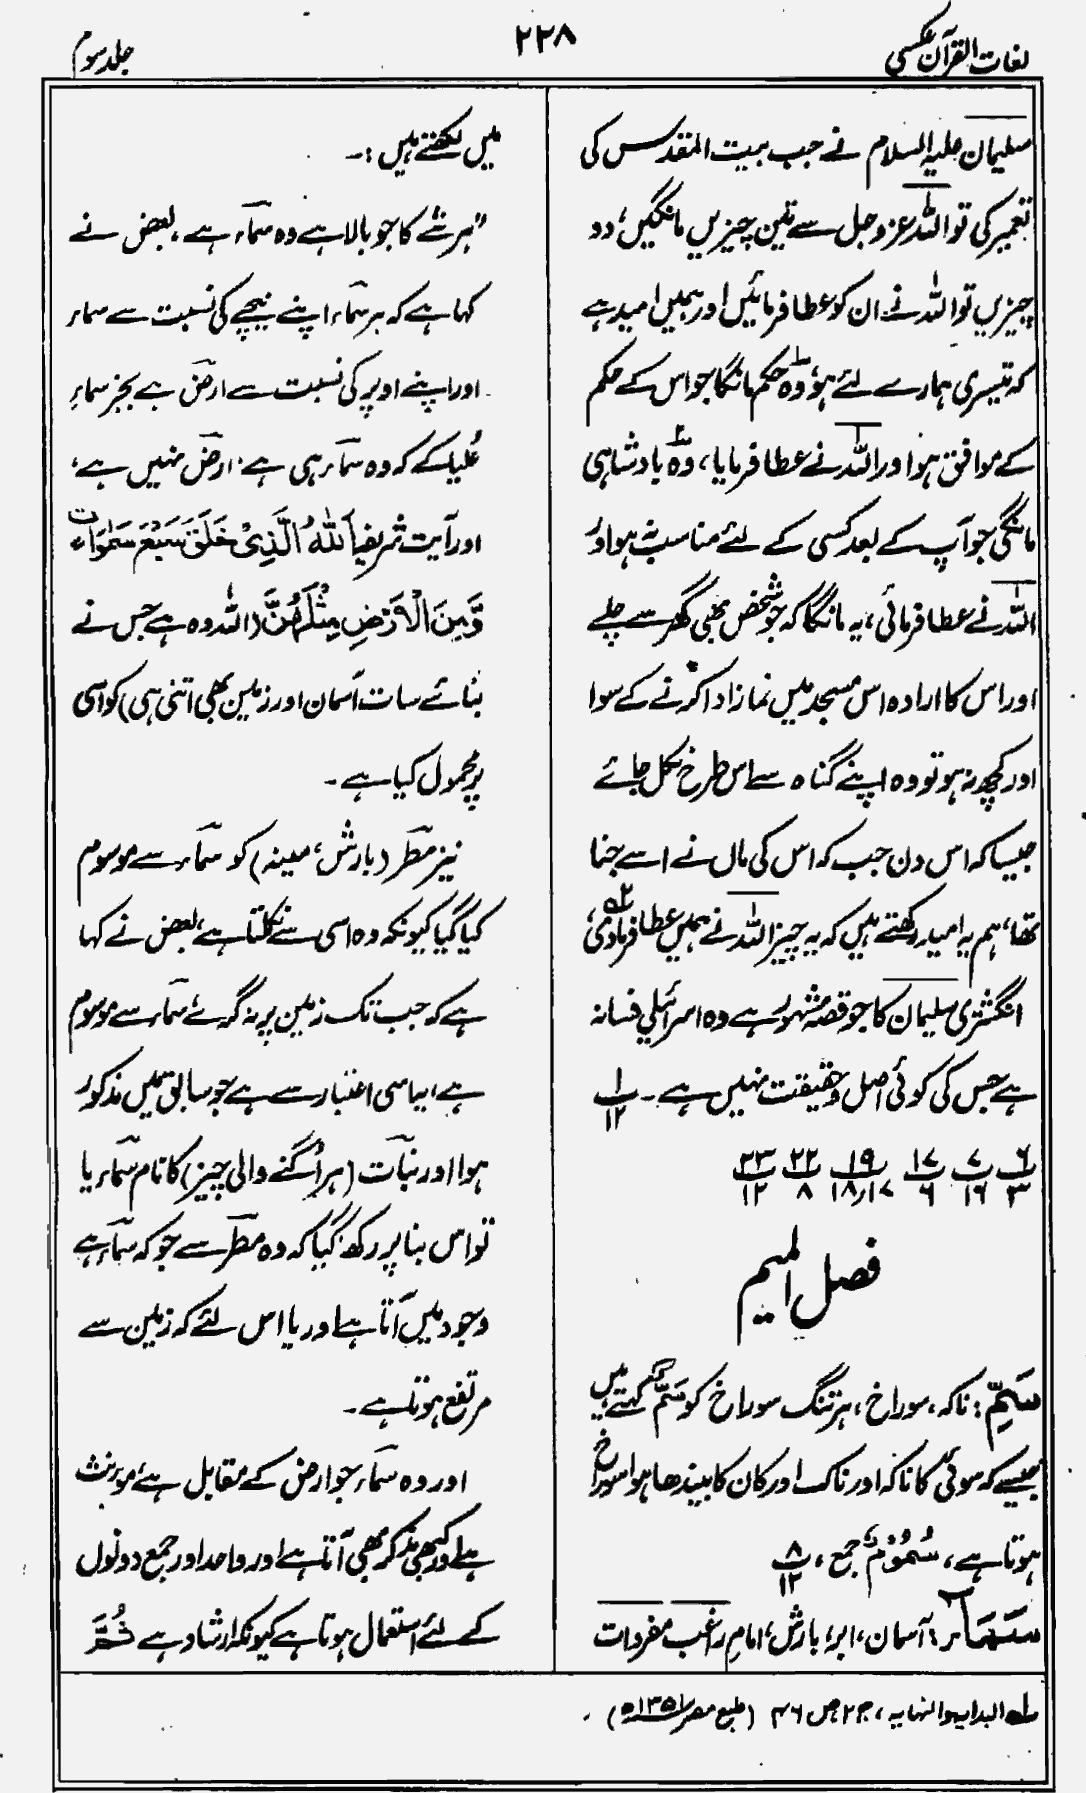 لغات القرآن عکسی
۲۲۸
جلد سوم
سلیمان علیہ السلام نے جب بیت المقدس کی
تعمیر کی تو اللہ عز و جل سے تین چیزیں مانگیں، دو
چیزیں تو اللہ نے ان کو عطا فرمائیں اور ہمیں امید ہے
کہ تیسری ہمارے لئے ہو، وہ حکم مانگا جو اس کے حکم
کے موافق ہوا اور اللہ نے عطا فرمایا، وہ بادشاہی
مانگی جو آپ کے بعد کسی کے لئے مناسب نہ ہو اور
اللہ نے عطا فرمائی، یہ مانگا کہ جو شخص بھی گھر سے چلے
اور اس کا ارادہ اس مسجد میں نماز ادا کرنے کے سوا
اور کچھ نہ ہو تو وہ اپنے گناہ سے اس طرح نکل جائے
جیسا کہ اس دن جب کہ اس کی ماں نے اسے جنا
تھا، ہم یہ امید رکھتے ہیں کہ یہ چیز اللہ نے ہمیں عطا فرمادی، لہ
انگشتری سلیمان کا جو قصہ مشہور ہے وہ اسرائیلی فسانہ
ہے جس کی کوئی اصل و حقیقت نہیں ہے۔ ۱/۱۲
۶/۳ ۷/۱۶ ۱۷/۶ ۱۹/۱۷،۱۸ ۲۲/۸ ۲۳/۱۲
فصل المیم
سَمِّ: ناکہ، سوراخ، ہر تنگ سوراخ کو سَمّ کہتے ہیں
جیسے کہ سوئی کا ناکہ اور ناک اور کان کا بیندھا ہوا سوراخ
ہوتا ہے، سُمُوْمٌ جمع، ۸/۱۲
سَمَاء: آسمان، ابر، بارش، امام راغب مفردات
میں لکھتے ہیں:۔
"ہر شے کا جو بالا ہے وہ سماء ہے، بعض نے
کہا ہے کہ ہر سماء اپنے نیچے کی نسبت سے سماء
اور اپنے اوپر کی نسبت سے ارض ہے بجز سماءِ
عُلیا کے کہ وہ سماء ہی ہے، ارض نہیں ہے،
اور آیت شریفہ اَللّٰہُ الَّذِیْ خَلَقَ سَبْعَ سَمٰوَات
وَّمِنَ الْاَرْضِ مِثْلَہُنَّ (اللہ وہ ہے جس نے
بنائے سات آسمان اور زمین بھی اتنی ہی) کو اسی
پر محمول کیا ہے۔
نیز مطر (بارش، مینہ) کو سماء سے موسوم
کیا گیا کیونکہ وہ اسی سے نکلتا ہے، بعض نے کہا
ہے کہ جب تک زمین پر نہ گرے سماء سے موسوم
ہے، یہ اسی اعتبار سے ہے جو سابق میں مذکور
ہوا اور نبات (ہر اُگنے والی چیز) کا نام سماء یا
تو اس بنا پر رکھ گیا کہ وہ مطر سے جو کہ سماء ہے
وجود میں آتا ہے اور یا اس لئے کہ زمین سے
مرتفع ہوتا ہے۔
اور وہ سماء جو ارض کے مقابل ہے، مؤنث
ہے اور کبھی مذکر بھی آتا ہے اور واحد اور جمع دونوں
کے لئے استعمال ہوتا ہے کیونکہ ارشاد ہے ثُمَّ
لہ البدایہ والنہایہ، ج۲ ص ۲۶ (طبع مصر ۱۳۵۱ھ)۔